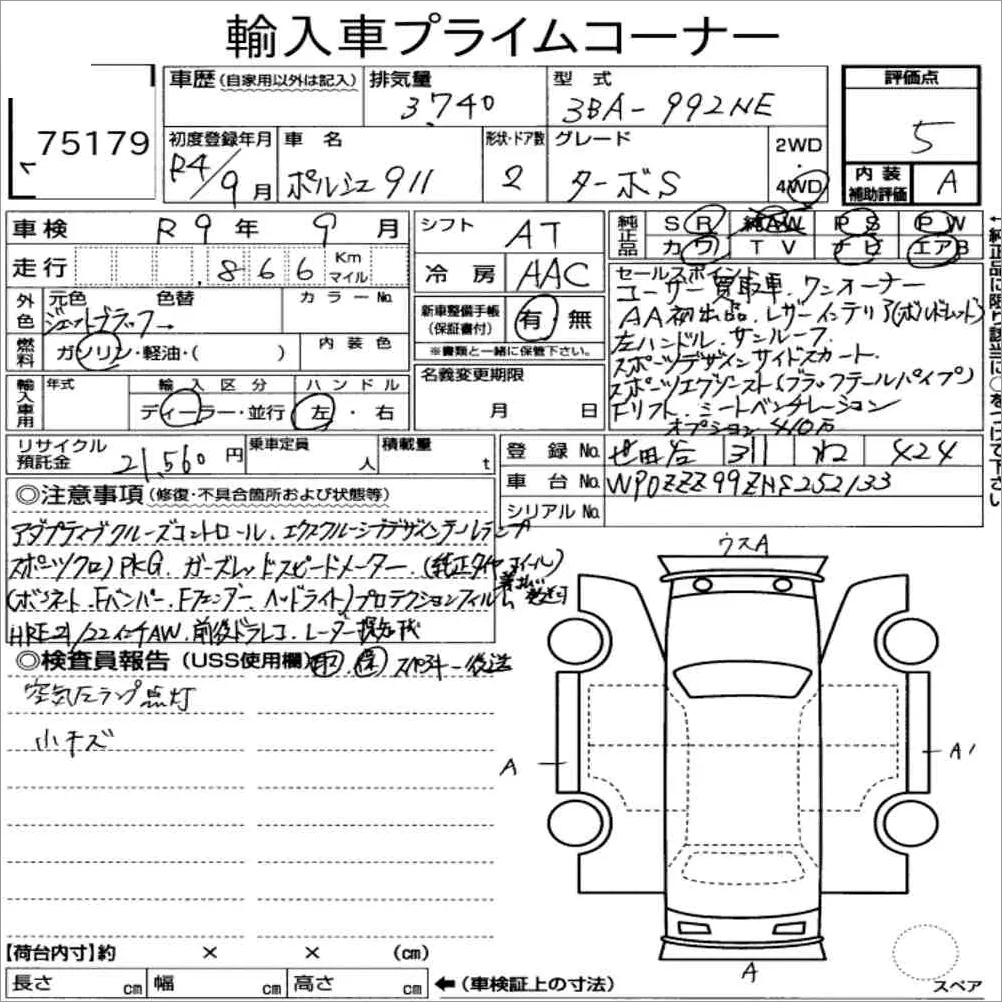 輸入車プライムコーナー
75179
車歴(自家用以外は記入)
排気量
3,740
型式
3BA-992NE
評価点
5
内装補助評価
A
初度登録年月
R4/9月
車名
ポルシェ911
形状・ドア数
2
グレード
ターボS
2WD
・
4WD
車検
R9年 9月
走行
,866
Km
マイル
外色
元色 色替 カラーNo.
ジェットブラック→
燃料
ガソリン・軽油・( )
内装色
輸入車用
年式
輸入区分
ディーラー・並行
ハンドル
左・右
シフト
AT
冷房
AAC
新車整備手帳(保証書付)
有 無
※書類と一緒に保管下さい。
名義変更期限
月 日
純正品
SR 純AW PS PW
カワ TV ナビ エアB
←純正品に限り該当に○をつけて下さい
セールスポイント
ユーザー買取車.ワンオーナー
AA初出品.レザーインテリア(ボルドレッド)
左ハンドル.サンルーフ.
スポーツデザインサイドスカート.
スポーツエグゾースト(ブラックテールパイプ)
Fリフト.シートベンチレーション
オプション410万
リサイクル預託金
21,560円
乗車定員
人
積載量
t
登録No.
世田谷 311 ね 424
車台No.
WP0ZZZ99ZNS252133
シリアルNo.
◎注意事項(修復・不具合箇所および状態等)
アダプティブクルーズコントロール.エクスクルーシブデザインテールランプ
スポーツクロノPKG.ガーズレッドスピードメーター.(純正タイヤホイール)
着払い発送可
(ボンネット.Fバンパー.Fフェンダー.ヘッドライト)プロテクションフィルム
HRE21/22インチAW.前後ドラレコ.レーダー探知機
◎検査員報告(USS使用欄)
取 保 スペアキー後送
空気圧ランプ点灯
小キズ
ウスA
A
A1
A
スペア
【荷台内寸】約 × × (cm)
長さ cm 幅 cm 高さ cm
←(車検証上の寸法)